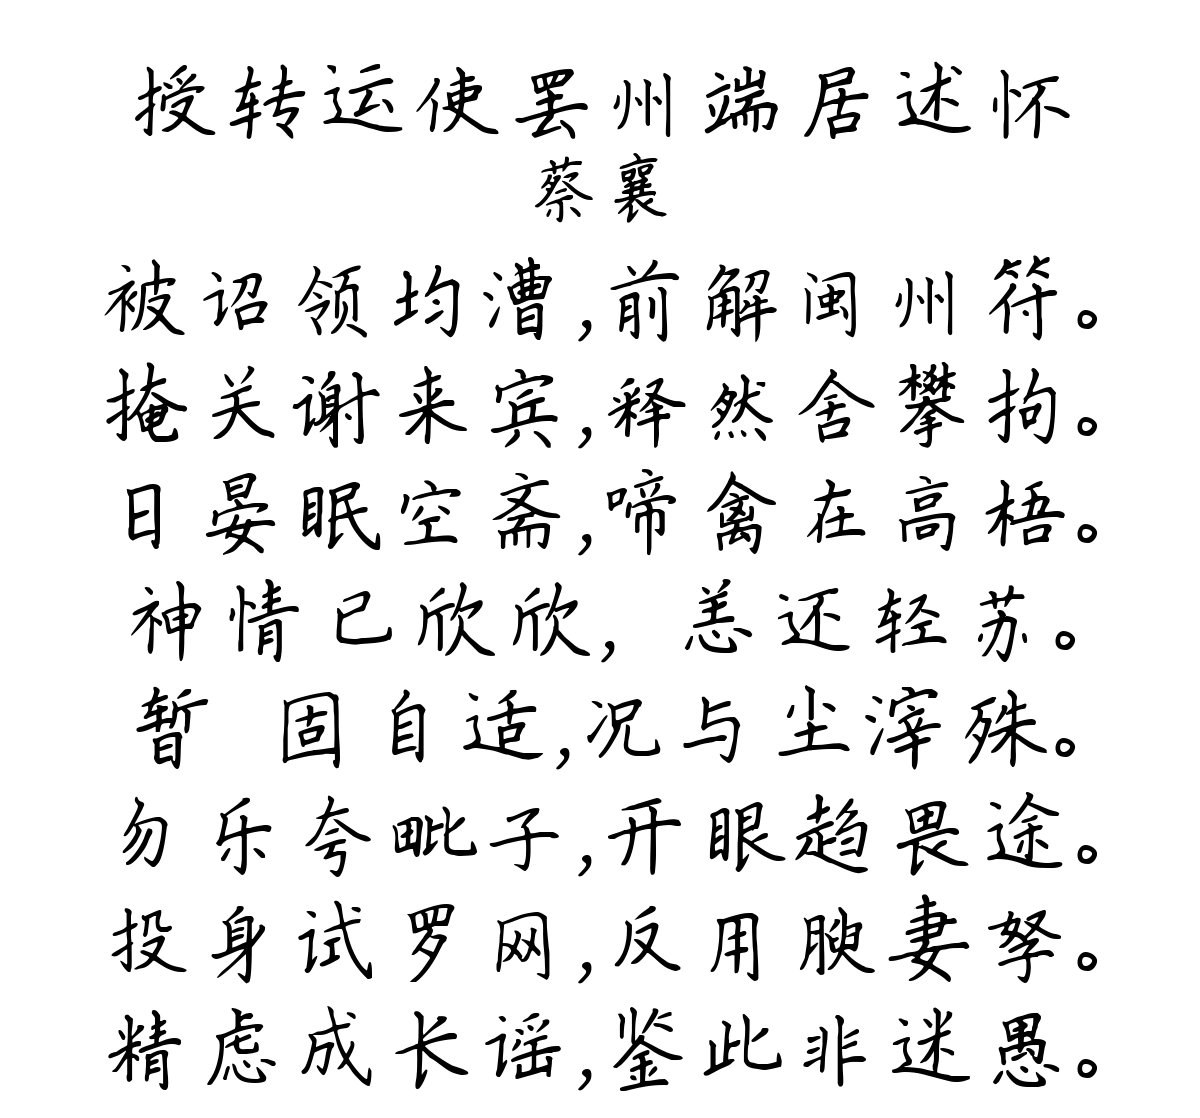 授转运使罢州端居述怀
蔡襄
被诏领均漕,前解闽州符。
掩关谢来宾,释然舍攀拘。
日晏眠空斋,啼禽在高梧。
神情已欣欣, 恙还轻苏。
暂 固自适,况与尘滓殊。
勿乐夸毗子,开眼趋畏途。
投身试罗网,反用腴妻孥。
精虑成长谣,鉴此非迷愚。